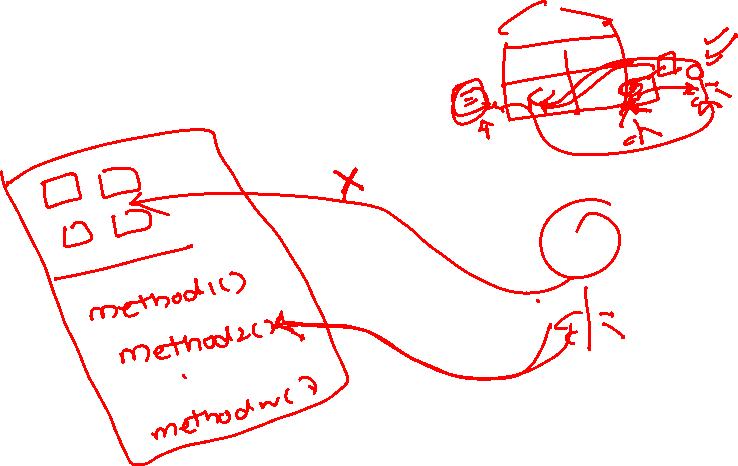 method1()
method2()
methodn()